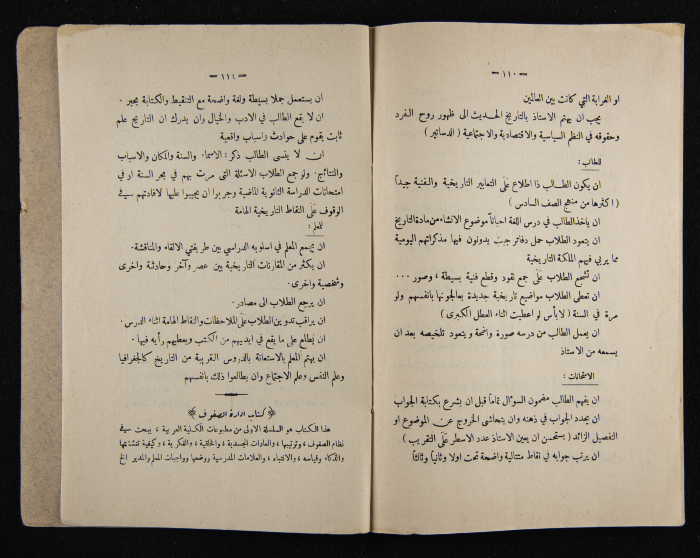 — ١١٠ —
او الغرابة التي كانت بين العالمين
يجب ان يهتم الاستاذ بالتاريخ الحديث الى ظهور روح الفرد
وحقوقه في النظم السياسية والاقتصادية والاجتماعية ( الدساتير )
للطالب :
ان يكون الطالب ذا اطلاع على التعابير التاريخية والفنية جيداً
( اكثرها من منهج الصف السادس )
ان ياخذ الطالب في درس اللغة احياناً موضوع الانشاء من مادة التاريخ
ان يتعود الطلاب حمل دفاتر جيب يدونون فيها مذكراتهم اليومية
مما يربي فيهم الملكة التاريخية
ان تشجيع الطلاب على جمع نقود وقطع فنية بسيطة ، وصور ...
ان تعطى الطلاب مواضيع تاريخية جديدة يعالجونها بانفسهم ولو
مرة في السنة ( لابأس لو اعطيت اثناء العطل الكبرى )
ان يعمل الطالب من درسه صورة واضحة ويتعود تلخيصه بعد ان
يسمعه من الاستاذ
الامتحانات :
ان يفهم الطالب مضمون السؤال تماماً قبل ان يشرع بكتابة الجواب
ان يحدد الجواب في ذهنه وان يتحاشى الخروج عن الموضوع او
التفصيل الزائد ( يستحسن ان يعين الاستاذ عدد الاسطر على التقريب )
ان يرتب جوابه في نقاط متتالية واضحة تحت اولا وثانياً وثالثاً
— ١١١ —
ان يستعمل جملا بسيطة ولغة واضحة مع التنقيط والكتابة بحبر .
ان لا يقع الطالب في الادب والخيال وان يدرك ان التاريخ علم
ثابت يقوم على حوادث واسباب واقعية
ان لا ينسى الطالب ذكر : الاسماء والسنة والمكان والاسباب
والنتائج . ولو جمع الطلاب الاسئلة التي مرت بهم في بحر السنة او في
امتحانات الدراسة الثانوية الماضية وجربوا ان يجيبوا عليها لافادتهم في
الوقوف على النقاط التاريخية الهامة
للمعلم :
ان يجمع المعلم في اسلوبه الدراسي بين طريقتي الالقاء والمناقشة .
ان يكثر من المقارنات التاريخية بين عصر وآخر وحادثة واخرى
وشخصية واخرى .
ان يرجع الطلاب الى مصادر .
ان يراقب تدوين الطلاب على الملاحظات والنقاط الهامة اثناء الدرس .
ان يُطلع على ما يقع في ايديهم من الكتب ويعطيهم رأيه فيها .
ان يهتم المعلم بالاستعانة بالدروس القريبة من التاريخ كالجغرافيا
وعلم النفس وعلم الاجتماع وان يطالعوا ذلك بانفسهم
كتاب ادارة الصفوف
هذا الكتاب هو السلسلة الاولى من مطبوعات الكلية العربية ، يبحث في
نظام الصفوف ، وترتيبها ، والعادات الجسدية ، والخلقية ، والفكرية ، وكيفية تنشئتها
والذكاء وقياسه ، والانتباه ، والعلامات المدرسية ووضعها وواجبات المعلم والمدير الخ